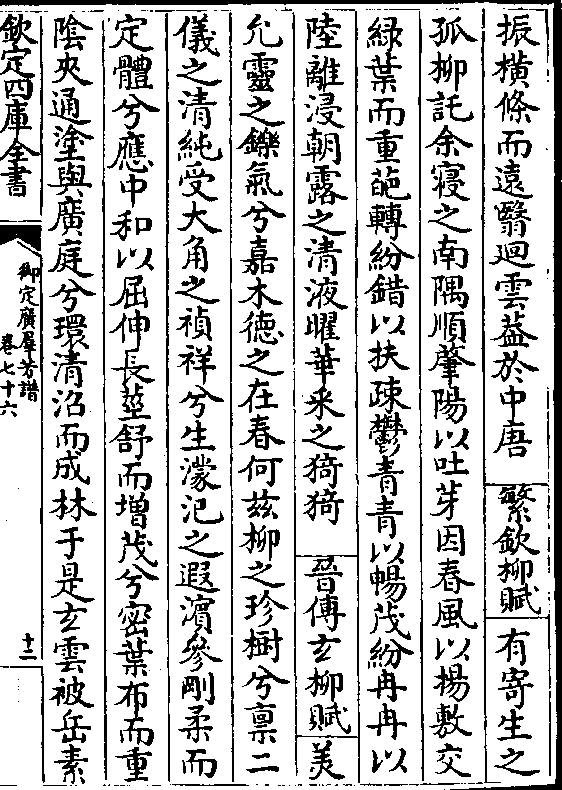 振橫條而遠翳迴雲葢於中唐　繁欽柳賦　有寄生之
孤柳託余寢之南隅順肇陽以吐芽因春風以揚敷交
緑葉而重葩轉紛錯以扶疎鬱青青以暢茂紛冉冉以
陸離浸朝露之清液曜華采之猗猗　晉傅玄柳賦　美
允靈之鑠氣兮嘉木德之在春何兹柳之珍樹兮禀二
儀之清純受大角之禎祥兮生濛汜之遐濱參剛柔而
定體兮應中和以屈伸長莖舒而增茂兮密葉布而重
陰夾通塗與廣庭兮環清沼而成林于是玄雲被岳素
欽定四庫全書
御定廣羣芳譜
卷七十六
十二